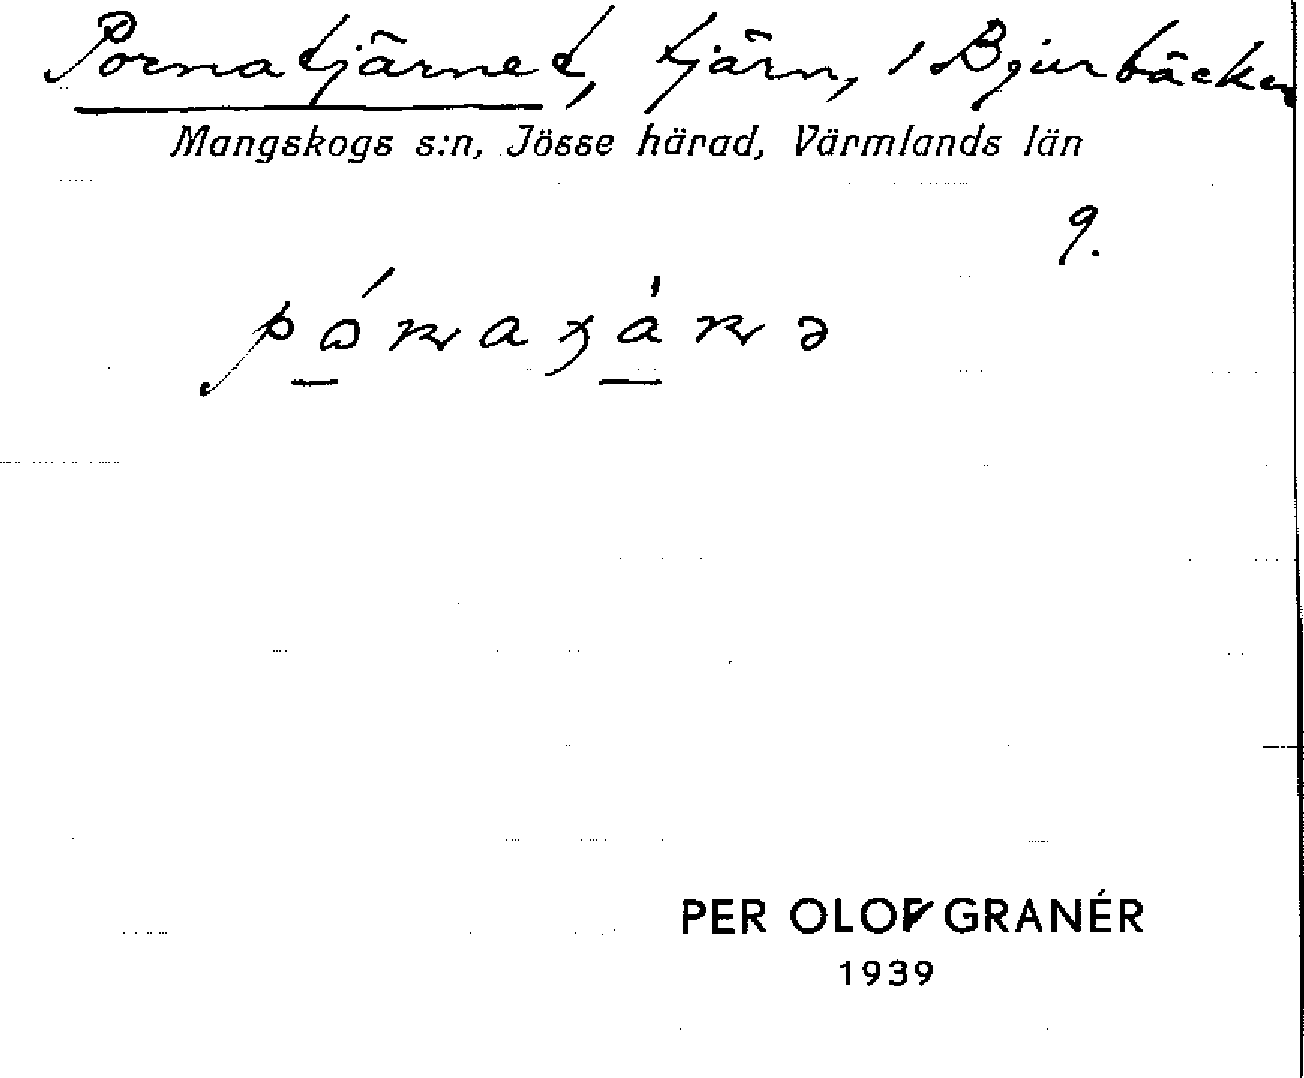 Pornatjärnet, tjärn, 1 Bjurbäcken
Mangskogs s:n, Jösse härad, Värmlands län
9.
PER OLOF GRANÉR
1939